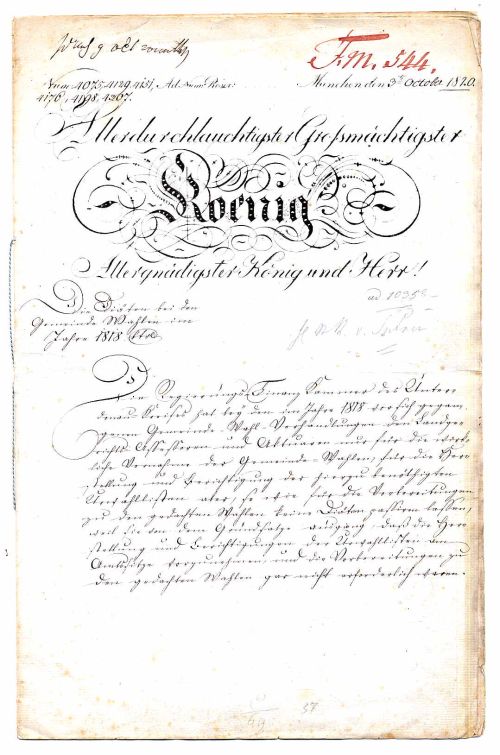 praes 9 oct
F.M. 544.
Num. 4075, 4129, 4151, Ad Num
4176, 4198, 4207.
München den 3. October 1820.
Allerdurchlauchtigster Großmächtigster
Koenig
Allergnädigster König und Herr!
ad 10358
Die Diäten bei den
Gemeinde Wahlen im
Jahre 1818 btr.
Die Regierungs Finanz Kammer des Unter
donau Kreises hat bey den im Jahre 1818 vor sich gegan
genen Gemeinde-Wahl-Verhandlungen den Landge
richts Assessoren und Actuaren nur für die wirk
liche Vornahme der Gemeinde-Wahlen, für die Her
stellung und Berichtigung der hiezu benöthigten
Urwahllisten aber, so wie für die Vorbereitungen
zu den gedachten Wahlen keine Diäten passiren lassen,
weil sie von dem Grundsatze ausging, daß die Her
stellung und Berichtigungen der Urwahllisten am
Amtssitze vorzunehmen, und die Vorbereitungen zu
den gedachten Wahlen gar nicht erforderlich waren.
37
49